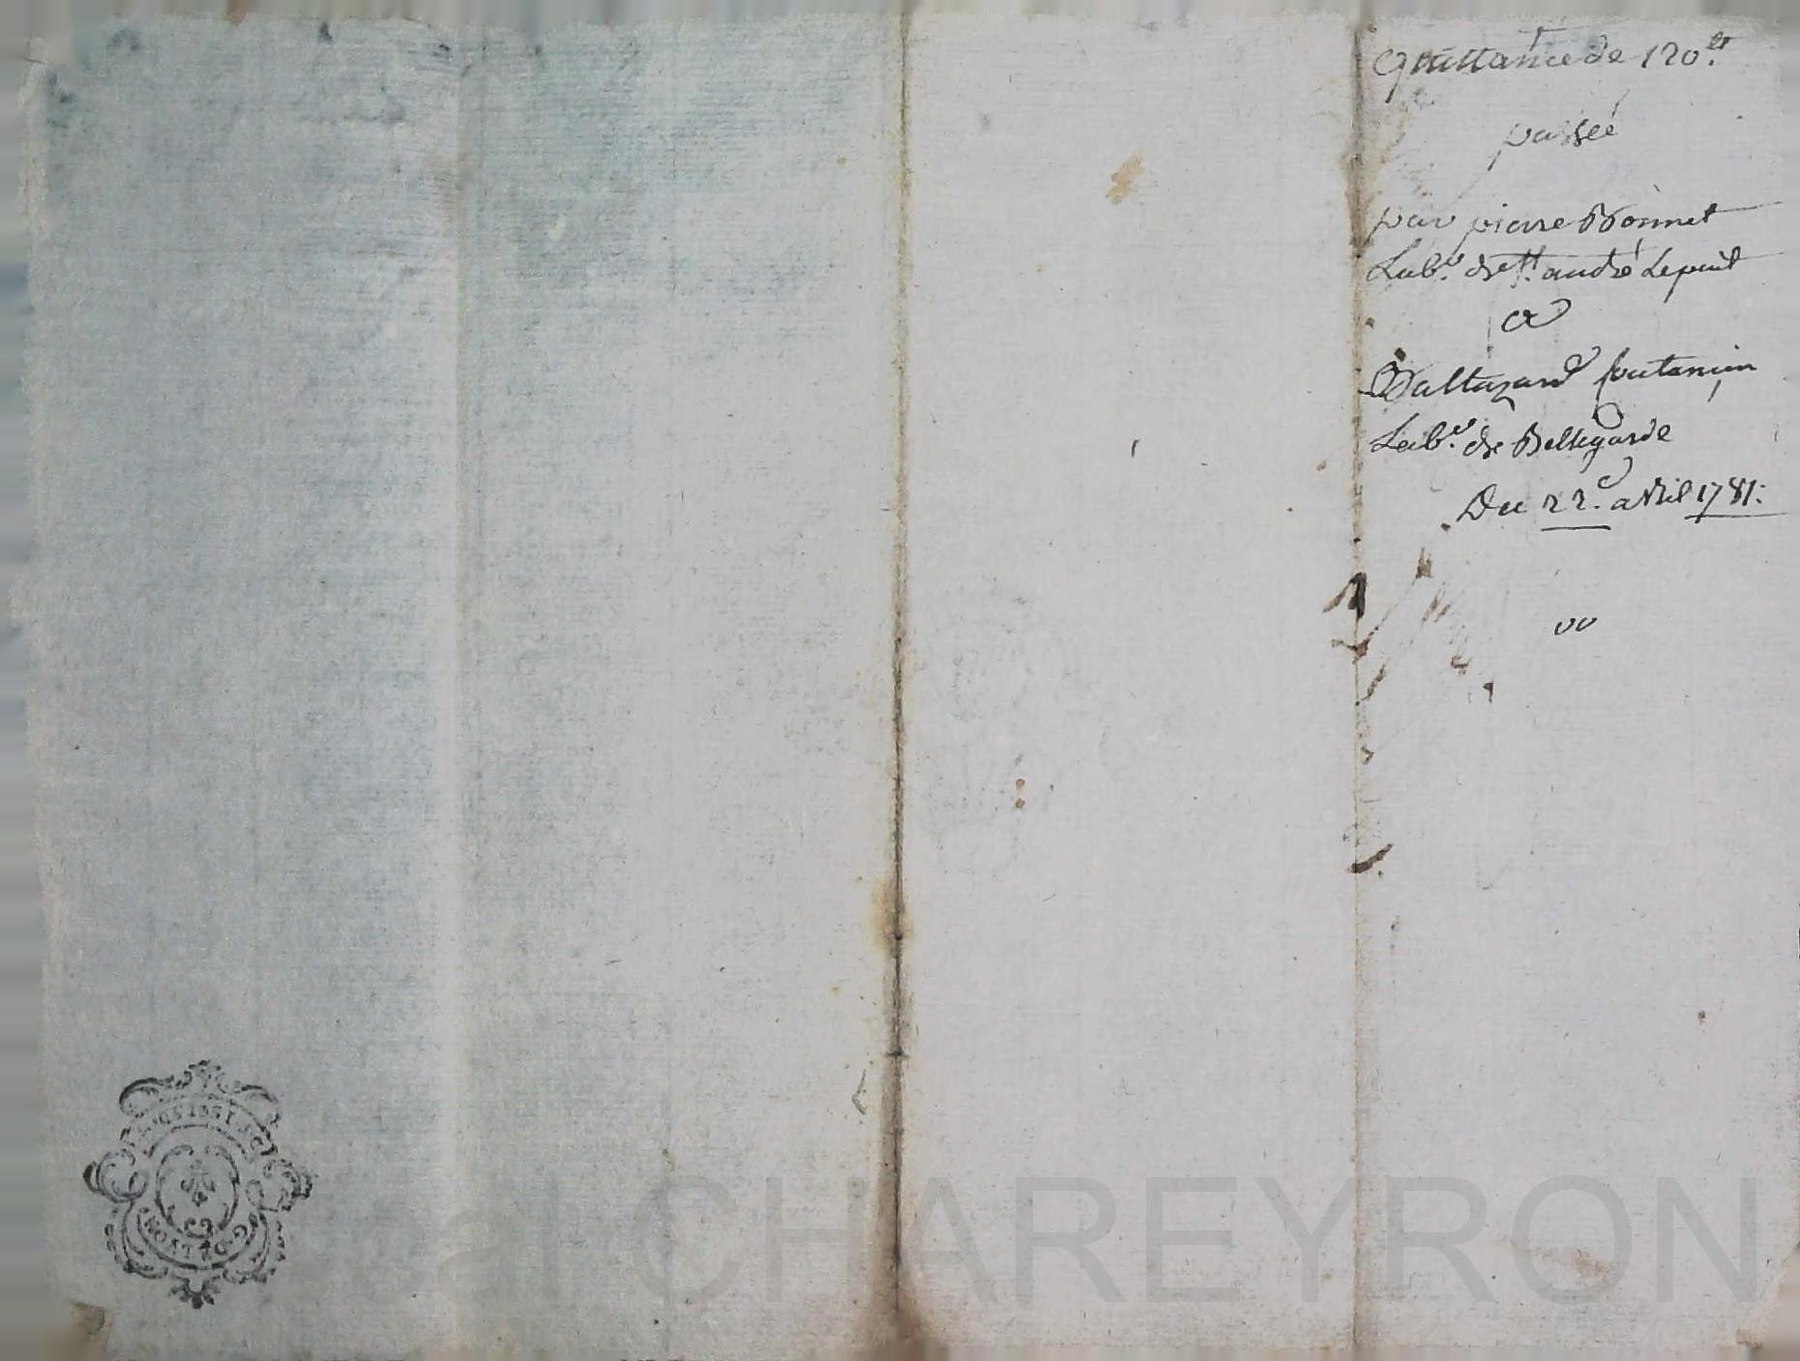 Quittance de 120.lt
passeé
par pierre Bonnet
Lab.r de St. andré Lepuit
a
Baltazard fontanin
Lab.r de Bellegarde
Du 22.e avril 1781.
CHAREYRON